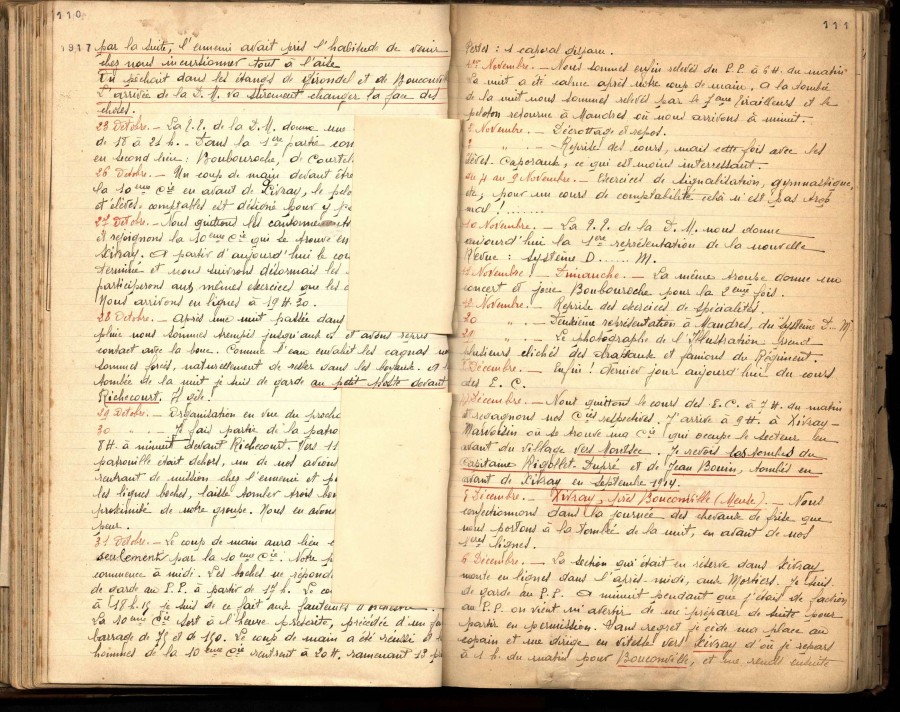 110
1917 par la suite, l'ennemi avait pris l'habitude de venir
chez nous incursionner tout à l'aise
On pêchait dans les étangs de Girondel et de Bouconvil
L'arrivée de la D.M. va sûrement changer la face des
choses.
23 Octobre. - La de la D.M. donne une
de 18 à 21 h. - Dans la 1ère partie con
en second lieu : Boubouroche, de Courtel
26 Octobre. - Un coup de main devant être
la 10ème Cie en avant de Xivray, le pelo
et élèves-comptables est désigné pour y
27 Octobre. - Nous quittons les cantonnements
et rejoignons la 10ème Cie qui se trouve en
Xivray. A partir d'aujourd'hui le cou
terminé et nous suivrons désormais les
participerons aux mêmes exercices que les
Nous arrivons en lignes à 19 H 30.
28 Octobre. - Après une nuit passée dans
pluie nous sommes trempés jusqu'aux os et avons repris
contact avec la boue. Comme l'eau envahit les cagnas no
sommes forcés, naturellement de rester dans les boyaux. A
tombée de la nuit je suis de garde au petit poste devant
Richecourt. Il gèle !
29 Octobre. - Organisation en vue du procha
30 " . - Je fais partie de la patro
8H à minuit devant Richecourt. Vers 11
patrouille était dehors, un de nos avions
rentrant de mission chez l'ennemi et p
les lignes boches, laisse tomber trois bo
proximité de notre groupe. Nous en avons
peur.
31 Octobre. - Le coup de main aura lieu
seulement par la 10ème Cie. Notre
commence à midi. Les boches ne réponde
de garde au P.P. à partir de 17 h. Le cou
à 18 h 15 je suis de ce fait aux fauteuils d'orchestre
La 10ème Cie sort à l'heure prescrite, précédée d'un
barrage de 75 et de 150. Le coup de main a été réussi
hommes de la 10ème Cie rentrent à 20H, ramenant 13
111
Pertes : 1 caporal disparu.
1er Novembre. - Nous sommes enfin relevés du P.P. à 6 H. du matin
La nuit a été calme après notre coup de main. A la tombée
de la nuit nous sommes relevés par le 7ème Tirailleurs et le
peloton retourne à Mandres où nous arrivons à minuit.
2 Novembre. - Décrottage et repos.
" . - Reprise des cours, mais cette fois avec les
élèves. Caporaux, ce qui est moins intéressant.
du 4 au 9 Novembre. - Exercices de signalisation, gymnastique,
etc, pour un cours de comptabilité celà n'est pas trop
mal !......
10 Novembre. - La de la D.M. nous donne
aujourd'hui la 1ère représentation de la nouvelle
Revue : Système D...... M.
11 Novembre. Dimanche. - La même troupe donne un
concert et joue Boubouroche pour la 2ème fois.
12 Novembre. Reprise des exercices de spécialités.
20 " . - Deuxième représentation à Mandres, du système D.. M
" . - Le photographe de l'Illustration prend
plusieurs clichés des drapeaux et fanions du Régiment.
Décembre. - Enfin ! dernier jour aujourd'hui du cours
des E. C.
Décembre. - Nous quittons le cours des E.C. à 7 H. du matin
et regagnons nos Cies respectives. J'arrive à 9 H. à Xivray-
Marvoisin où se trouve ma Cie qui occupe le secteur en
avant du village vers Montsec. Je revois les tombes du
Capitaine Rigollet Dupré et de Jean Bouin, tombés en
avant de Xivray en septembre 1914.
5 Décembre. - Xivray, près Bouconville (Meuse). - Nous
confectionnons dans la journée des chevaux de frise que
nous portons à la tombée de la nuit, en avant de nos
1ères lignes.
6 Décembre. - La section qui était en réserve dans Xivray
monte en lignes dans l'après-midi, aux Mortiers. Je suis
de garde au P.P. A minuit pendant que j'étais de faction
au P.P. on vient m'avertir de me préparer de suite pour
partir en permission. Sans regret je cède ma place au
copain et me dirige en vitesse vers Xivray d'où je repars
à 1 h. du matin pour Bouconville, et me rends ensuite